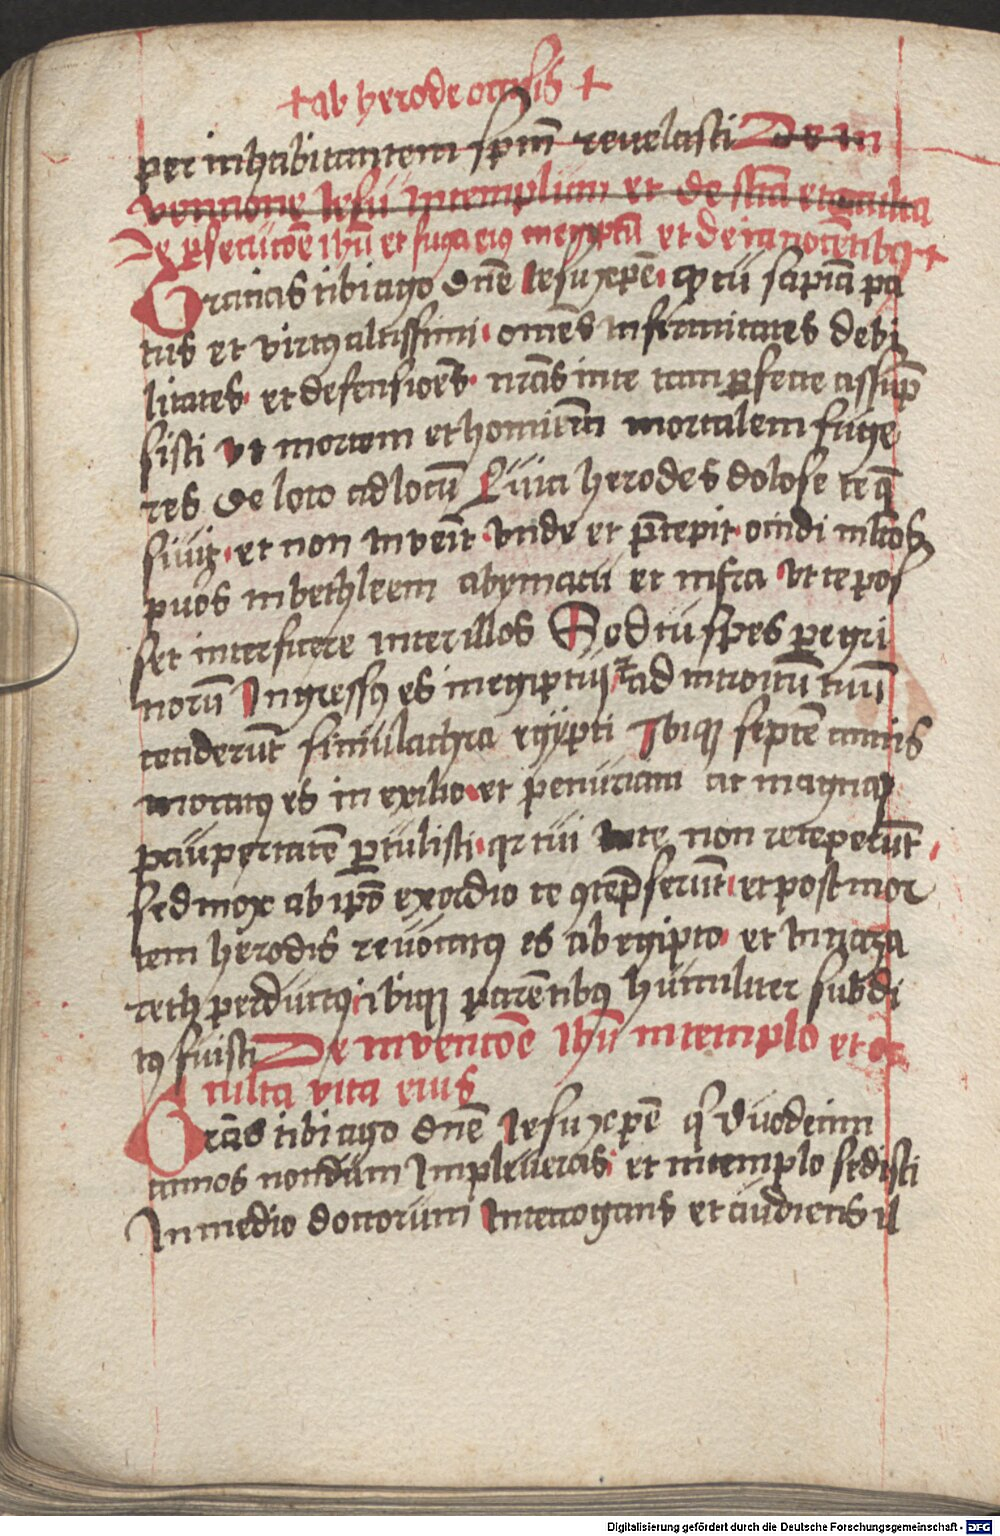 + ab herode occisis +
per inhabitantem spm̄ reuelasti De in
vencione Iesu in templum et de stīa et occulta
De ꝑsecucōe ihū et fuga eiꝰ in egyptū et de innocētibꝰ +
Gracias tibi ago dn̄e Iesu xp̄e · qꝛ tu sapiīa pa
tris et virtꝰ altissimi · om̄es infirmitates debi
litates · et defensiōes · nr̄as in te tam ꝑfecte assūp
sisti vt mortem et hominem mortalem fuge
res de loco ad locū Quia herodes dolose te q̄
siuit · et non inuēit · vnde et p̄cepit · occidi ml̄tos
puos in bethleem a bymatu et infra vt te pos
set interficere inter illos Sed tu spes ꝑegri
norū Ingressꝰ es in egiptū · et ad introitū tuū
ceciderūt simulachra egypti Ibiqꝫ septē annis
moratꝰ es in exilio · et penuriam ac magnaꝫ
paupertatē ꝑtulisti · qꝛ tui te non receperūt ·
sed mox ab ip̄o exordio te ꝯtēpserūt · et post mor
tem herodis reuocatꝰ es ab egipto · et in naza
reth perductꝰ · ibiqꝫ parētibꝰ humiliter subdi
tꝰ fuisti De inuencōe ihū in templo et oc
culta vita eius
Grās tibi ago dn̄e Iesu xp̄e qͥ duodecim
annos nondum Impleueras · et in templo sedisti
In medio doctorum Interrogans et audiens il
Digitalisierung gefördert durch die Deutsche Forschungsgemeinschaft - DFG